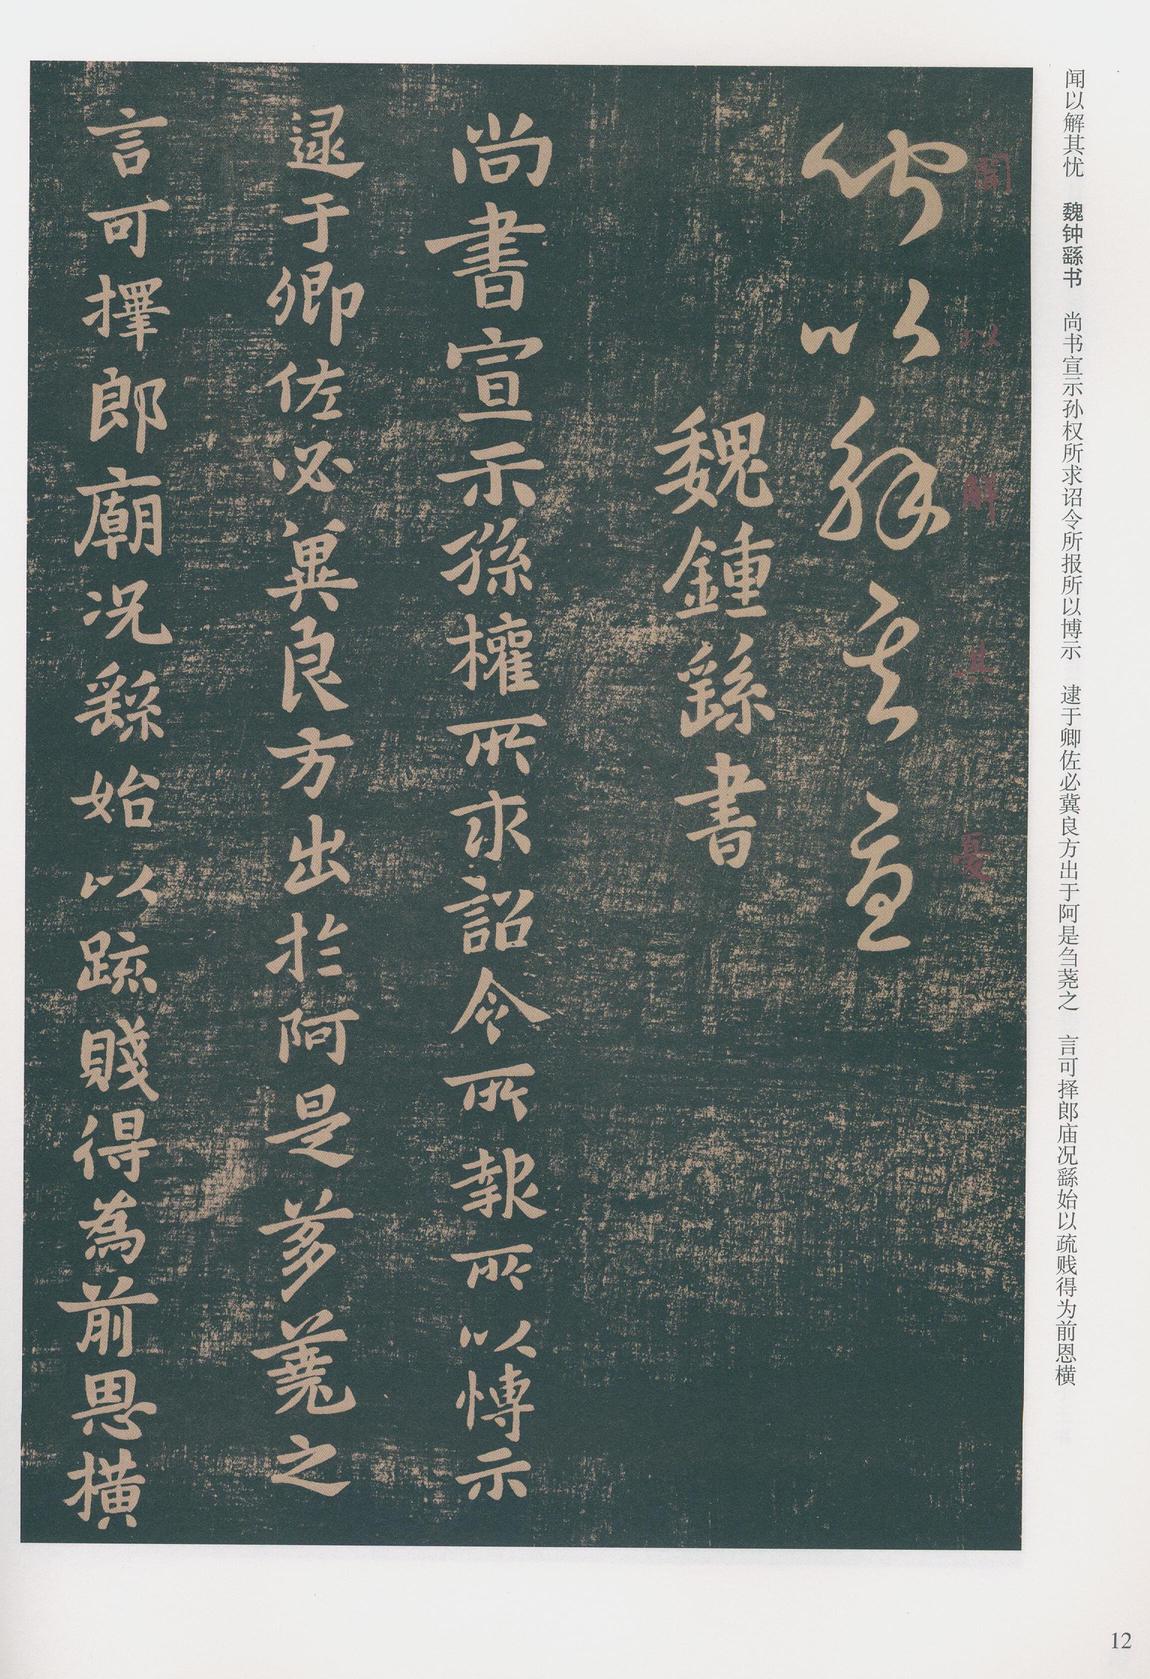 闻以解其忧　魏钟繇书　尚书宣示孙权所求诏令所报所以博示　逮于卿佐必冀良方出于阿是刍荛之　言可择郎庙况繇始以疏贱得为前恩横
聞
以
解
其
憂
聞以解其憂
魏鍾繇書
尚書宣示孫權所求詔令所報所以博示
逮于卿佐必冀良方出於阿是芻蕘之
言可擇郎廟況繇始以疏賤得為前恩橫
12